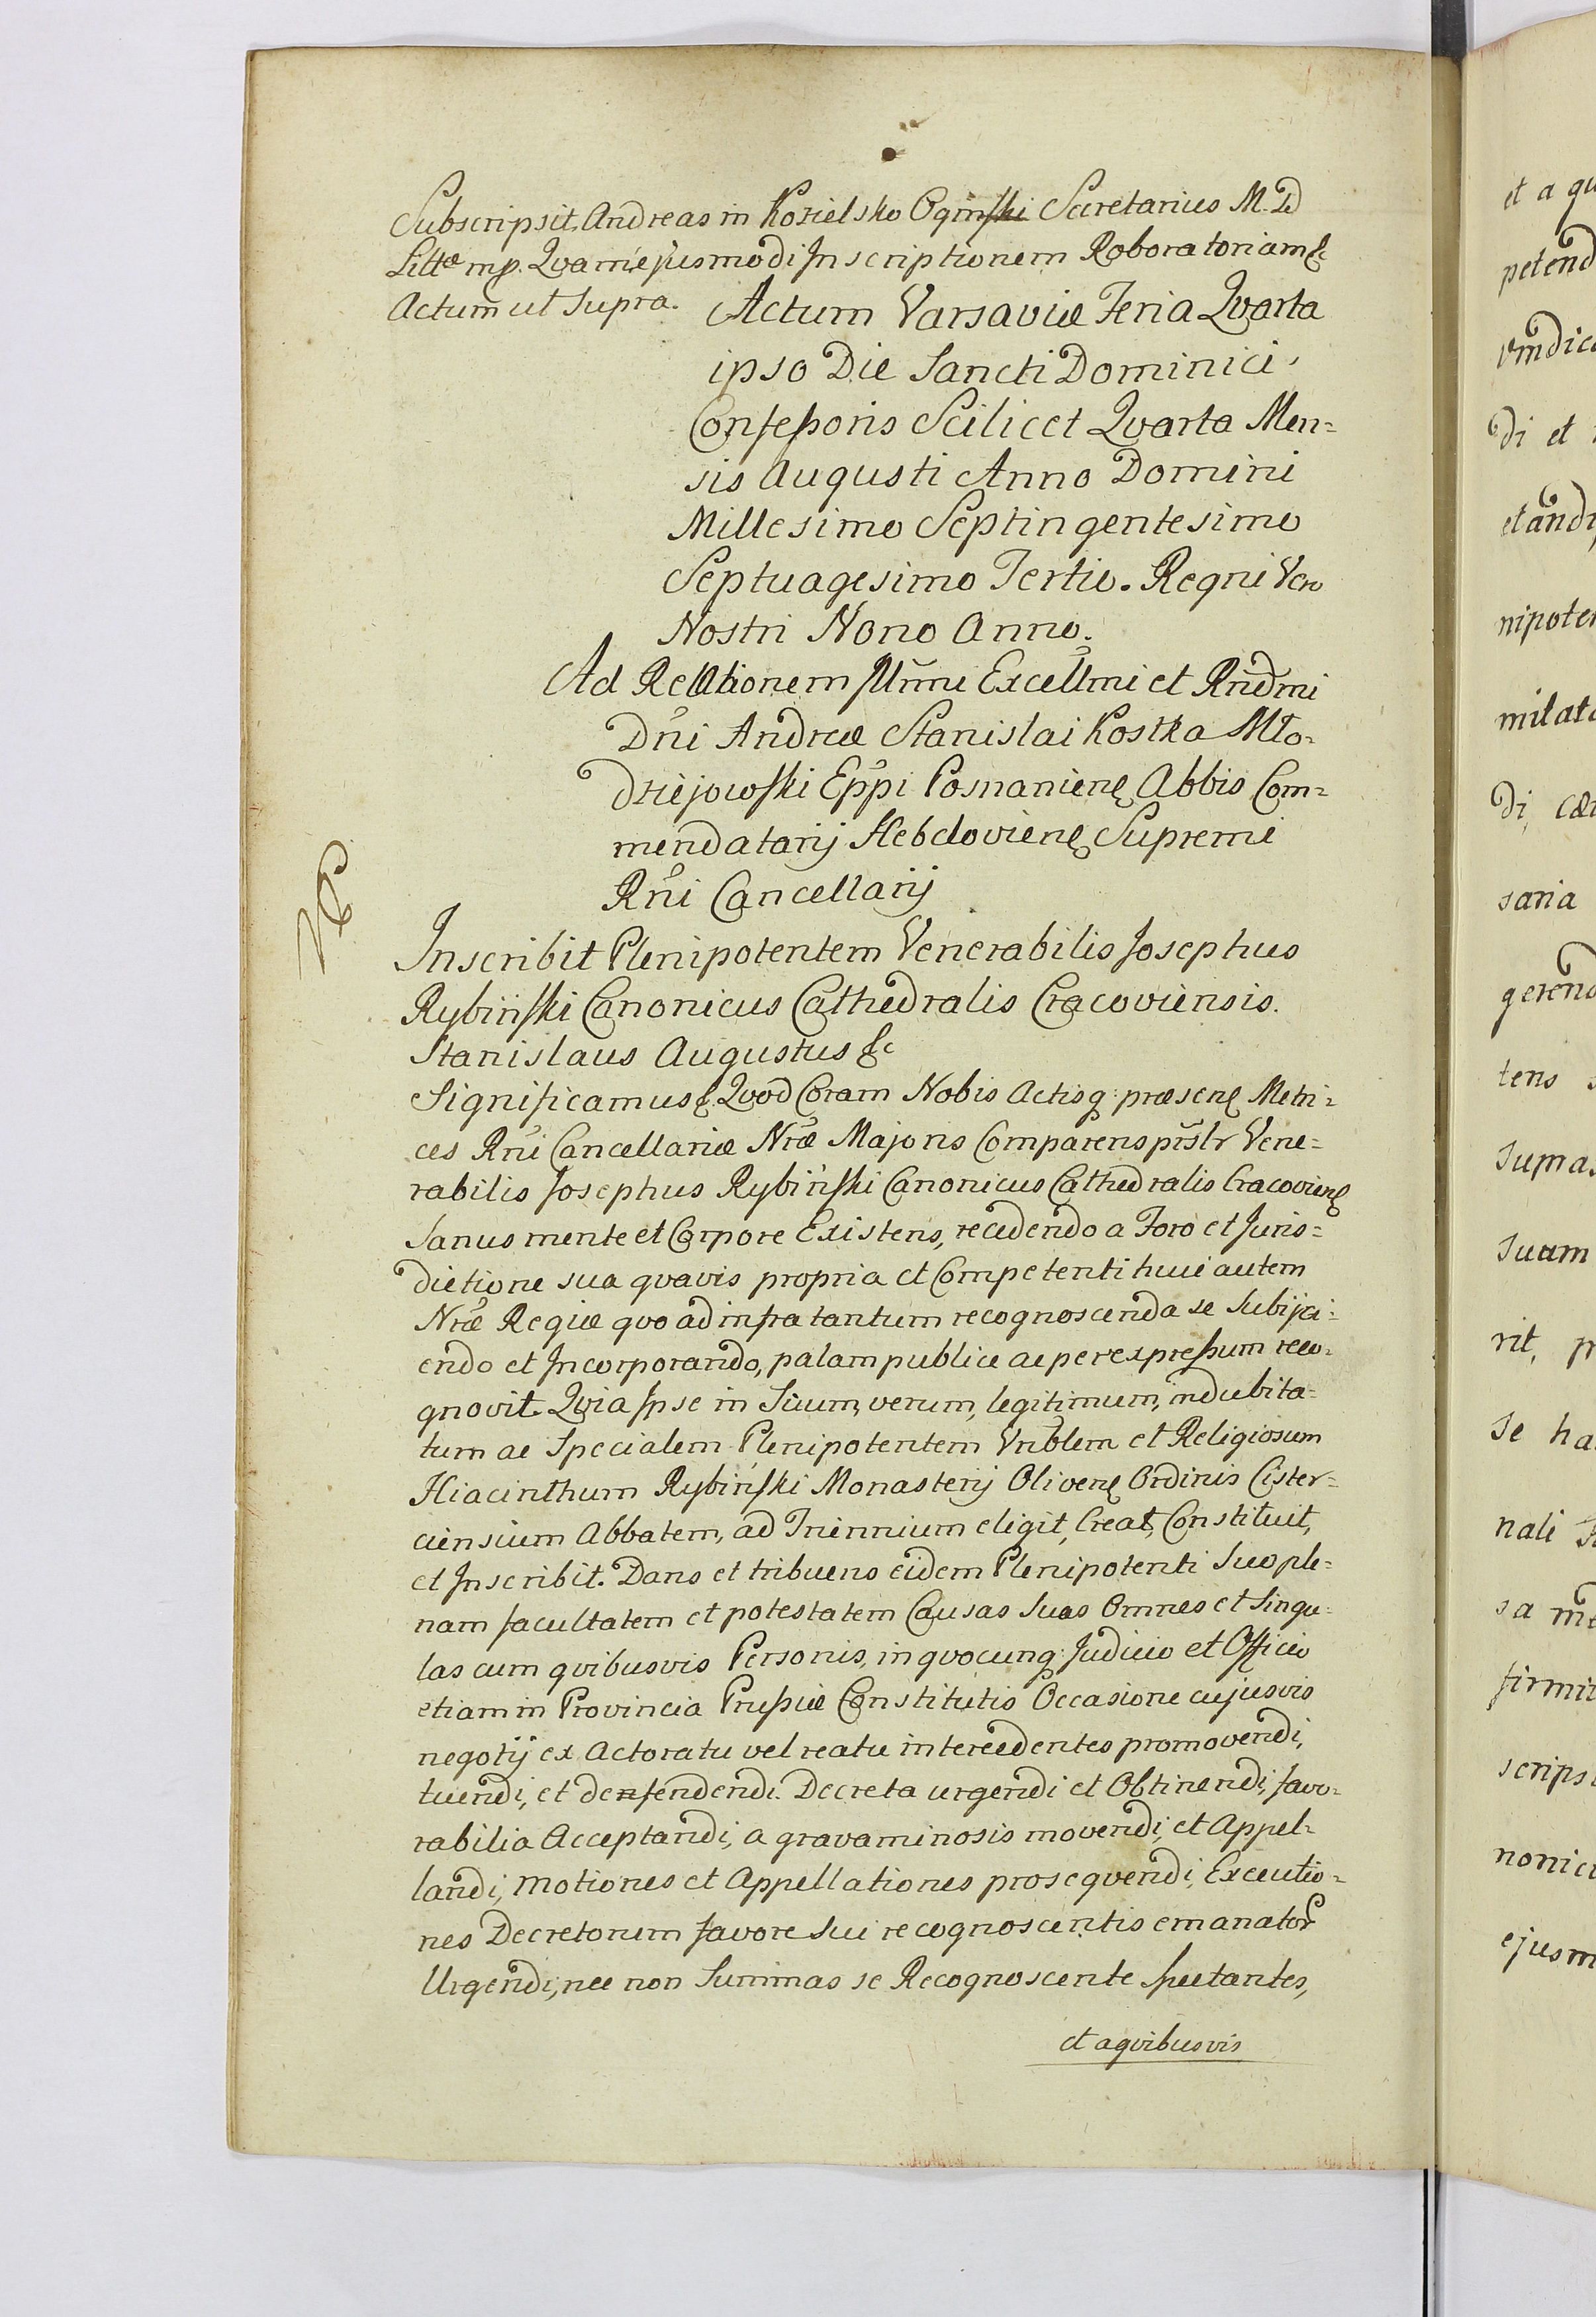 Subscripsit, Andreas in Kozielsko Oginski Secretarius M. D
Littæ mp. Quam ejusmodi Inscriptionem Roboratoriam &c
Actum ut supra.
Actum Varsaviæ Feria Quarta
ipso Die Sancti Dominici,
Confessoris Scilicet Quarta Men=
sis Augusti Anno Domini
Millesimo Septingentesimo
Septuagesimo Tertio. Regni Vero
Nostri Nono Anno.
Ad Relationem Illmi Excellmi et Rndmi
Dni Andreæ Stanislai Kostka Mło=
dziejowski Eppi Posnaniens Abbis Com=
mendatarij Hebdoviens Supremi
Rni Cancellarij
Inscribit Plenipotentem Venerabilis Josephus
Rybiński Canonicus Cathedralis Cracoviensis.
Stanislaus Augustus &c
Significamus &. Quod Coram Nobis Actisq: præsens Metri=
ces Rni Cancellariæ Nræ Majoris Comparens prslr Vene=
rabilis Josephus Rybiński Canonicus Cathedralis Cracoviens
Sanus mente et Corpore Existens, recedendo a Foro et Juris=
dictione sua quavis propria et Competenti huic autem
Nræ Regiæ quo ad infra tantum recognoscenda se Subijci=
endo et Incorporando, palam publice ac per expressum reco=
gnovit. Quia Ipse in Suum, verum, legitimum, indubita=
tum ac Specialem Plenipotentem Vnblem et Religiosum
Hiacinthum Rybiński Monasterij Olivens Ordinis Cister=
ciensium Abbatem, ad Triennium eligit, Creat, Constituit,
et Inscribit. Dans et tribuens eidem Plenipotenti Suo ple=
nam facultatem et potestatem Causas Suas Omnes et Singu=
las cum quibusvis Personis, in quocunq: Judicio et Officio
etiam in Provincia Prussiæ Constitutis Occasione cujusvis
negotij ex Actoratu vel reatu intercedentes promovendi,
tuendi, et defendendi. Decreta urgendi et Obtinendi, favo=
rabilia Acceptandi, a gravaminosis movendi, et Appel=
landi, motiones et Appellationes prosequendi, Executio=
nes Decretorum favore sui recognoscentis emanator
Urgendi, nec non Summas se Recognoscente spectantes,
et a quibusvis